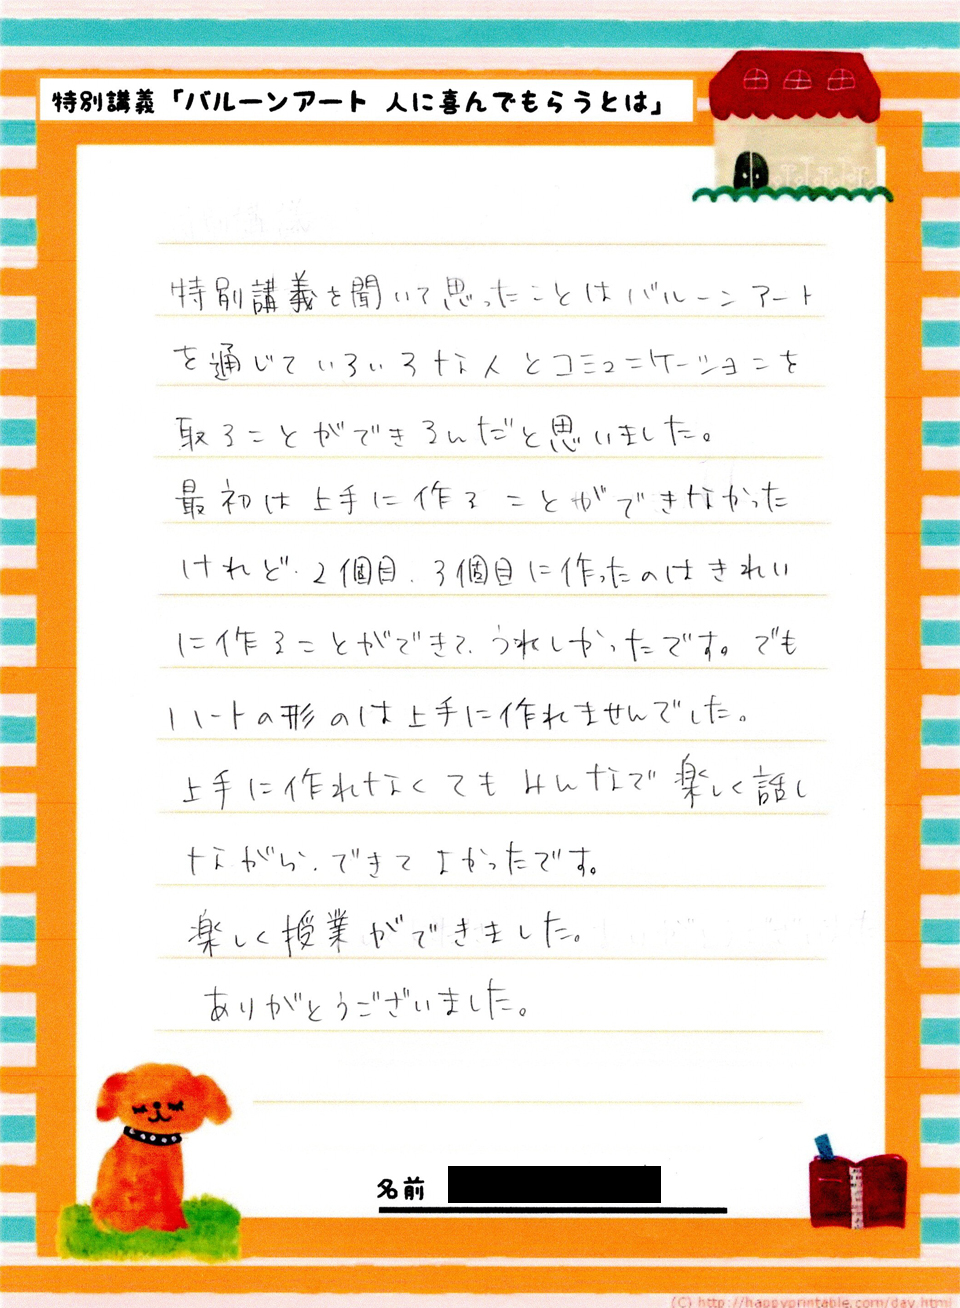 特別講義「バルーンアート 人に喜んでもらうとは」
特別講義を聞いて思ったことはバルーンアート
を通じていろいろな人とコミュニケーションを
取ることができるんだと思いました。
最初は上手に作ることができなかった
けれど、2個目、3個目に作ったのはきれい
に作ることができて、うれしかったです。でも
ハートの形のは上手に作れませんでした。
上手に作れなくてもみんなで楽しく話し
ながら、できてよかったです。
楽しく授業ができました。
ありがとうございました。
名前
(C) http://happyprintable.com/day.html